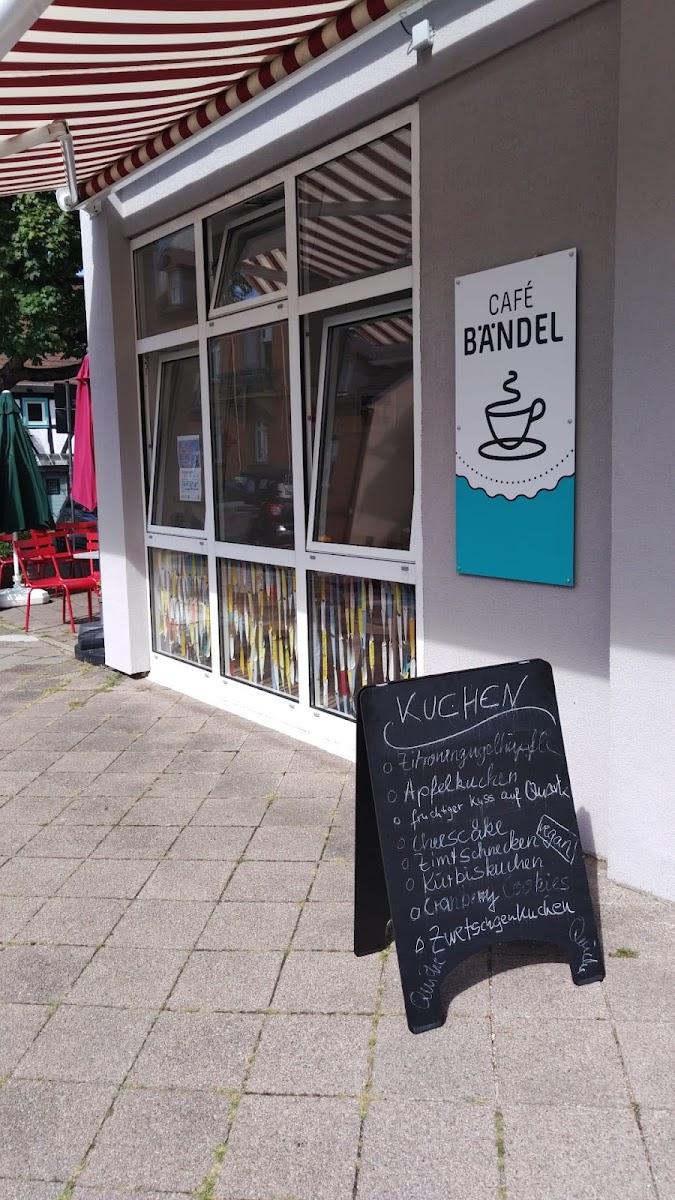 CAFÉ
BÄNDEL
KUCHEN
Zitronengugelhüpfle
Apfelkuchen
fruchtiger Kuss auf Quark
Cheesecake
Zimtschnecken
vegan
Kürbiskuchen
Cranberry Cookies
Zwetschgenkuchen
Quiche
Quiche